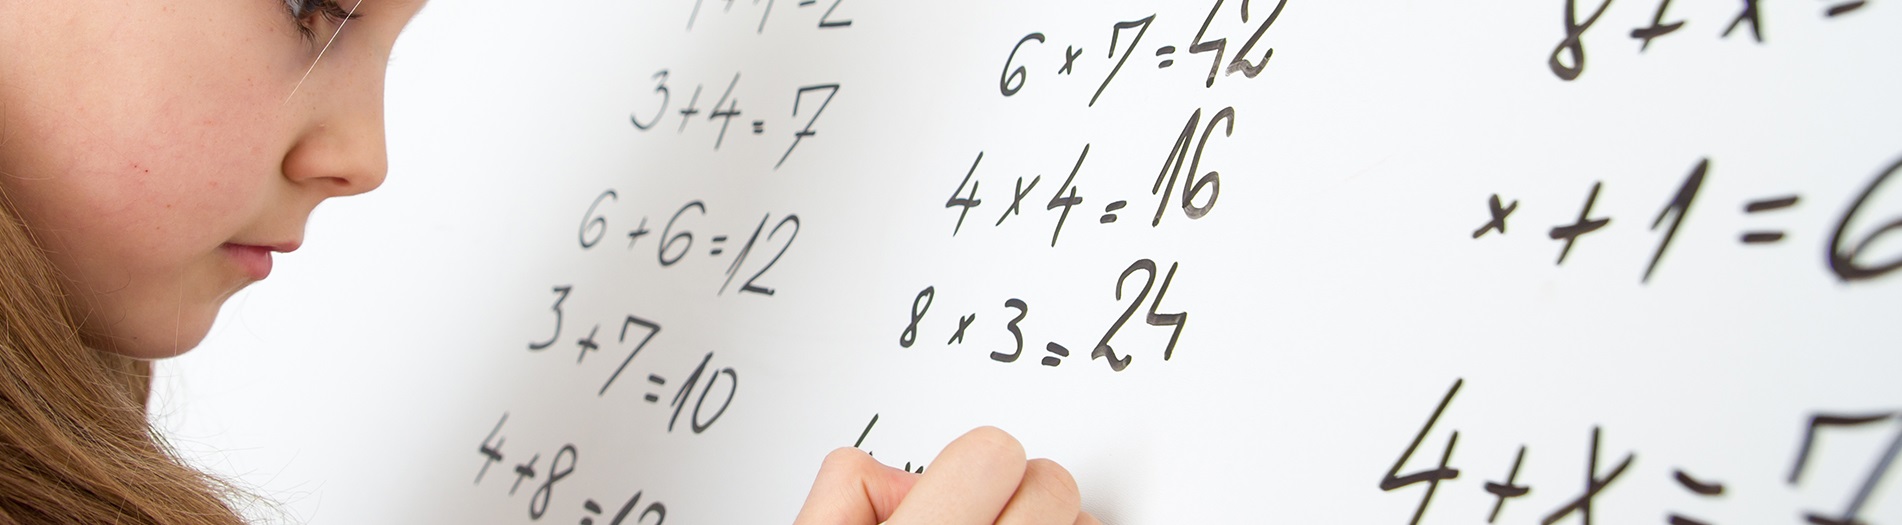 1+1=2
3+4=7
6+6=12
3+7=10
4+8=12
6×7=42
4×4=16
8×3=24
8+x=
x+1=6
4+x=7